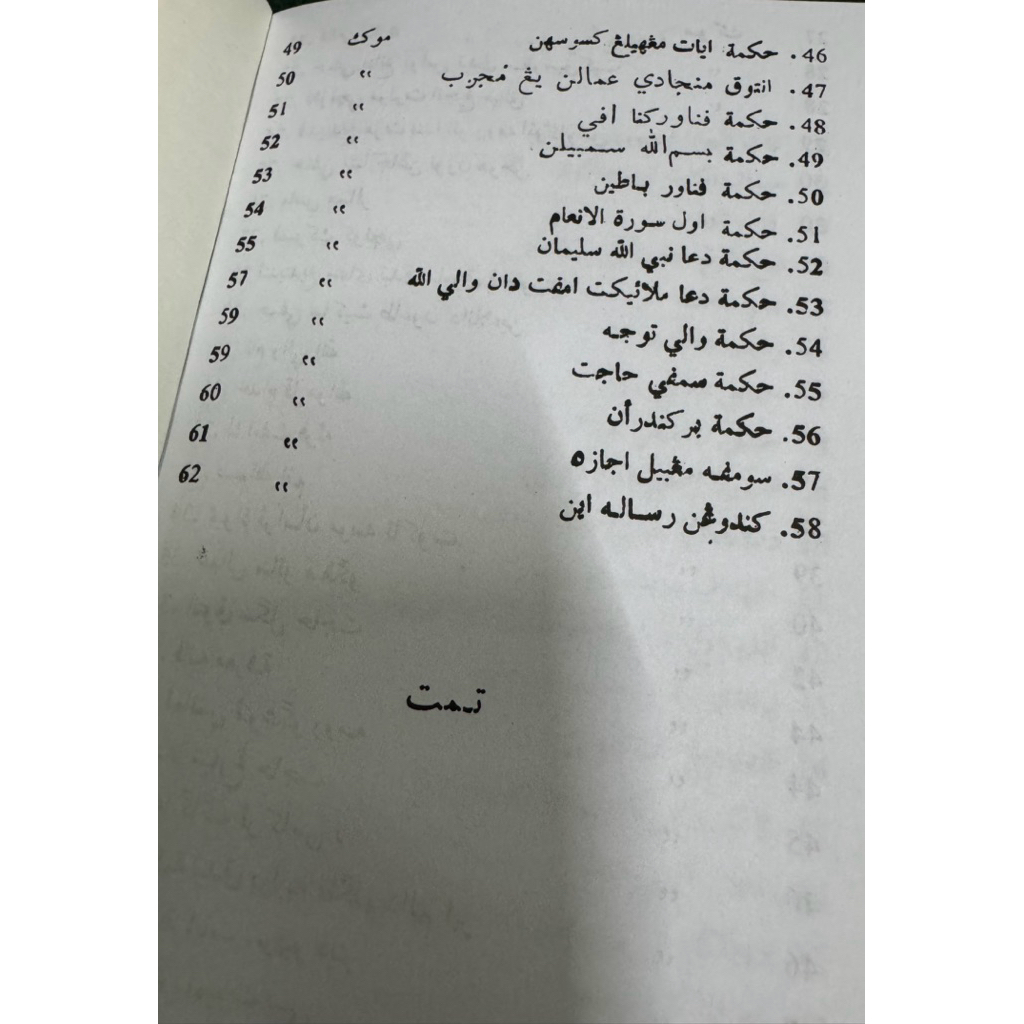 46. حكمة ايات مڠهيلڠ كسوسهن موكـ 49
47. انتوق منجادي عمالن يڠ مُجرب ,, 50
48. حكمة فناوركنا افي ,, 51
49. حكمة بسم الله سمبيلن ,, 52
50. حكمة فناور باطين ,, 53
51. حكمة اول سورة الانعام ,, 54
52. حكمة دعا نبي الله سليمان ,, 55
53. حكمة دعا ملائيكت امفت دان والي الله ,, 57
54. حكمة والي توجه ,, 59
55. حكمة سمفي حاجت ,, 59
56. حكمة بركندرأن ,, 60
57. سومفه مڠبيل اجازه ,, 61
58. كندوڠن رساله اين ,, 62
تمت